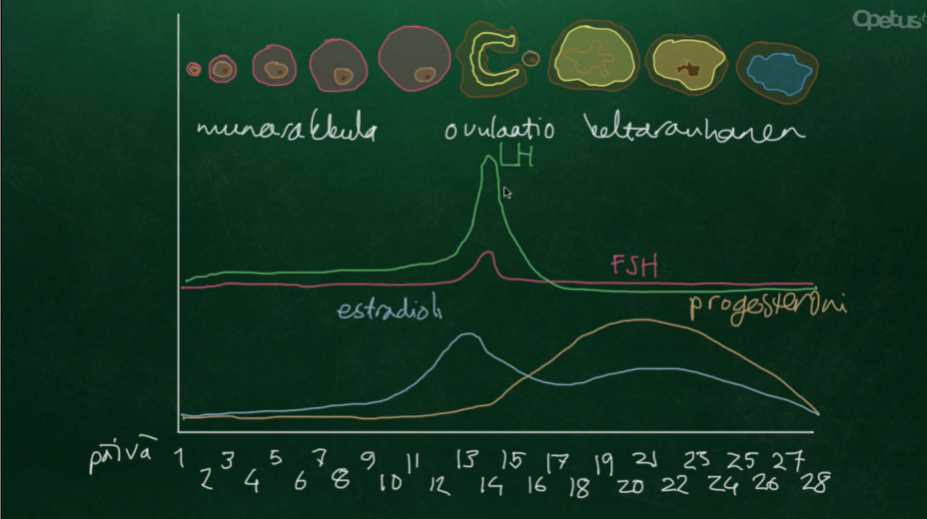 Opetus+
munarakkula ovulaatio keltarauhanen
LH
FSH
estradioli progesteroni
päivä 1 3 5 7 9 11 13 15 17 19 21 23 25 27
2 4 6 8 10 12 14 16 18 20 22 24 26 28